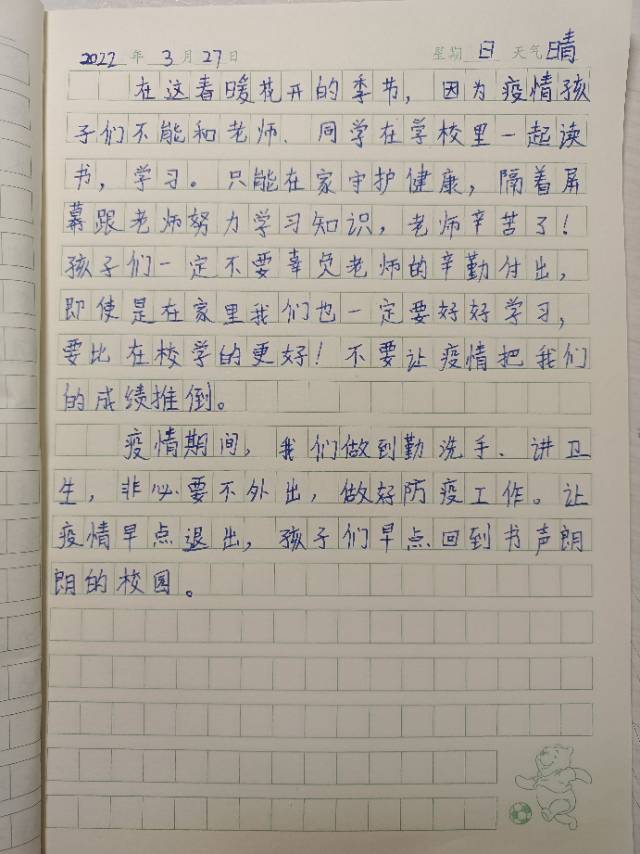 2022 年 3 月 27 日 星期 日 天气 晴
在这春暖花开的季节，因为疫情孩
子们不能和老师、同学在学校里一起读
书，学习。只能在家守护健康，隔着屏
幕跟老师努力学习知识，老师辛苦了！
孩子们一定不要辜负老师的辛勤付出，
即使是在家里我们也一定要好好学习，
要比在校学的更好！不要让疫情把我们
的成绩推倒。
疫情期间，我们做到勤洗手、讲卫
生，非必要不外出，做好防疫工作。让
疫情早点退出，孩子们早点回到书声朗
朗的校园。